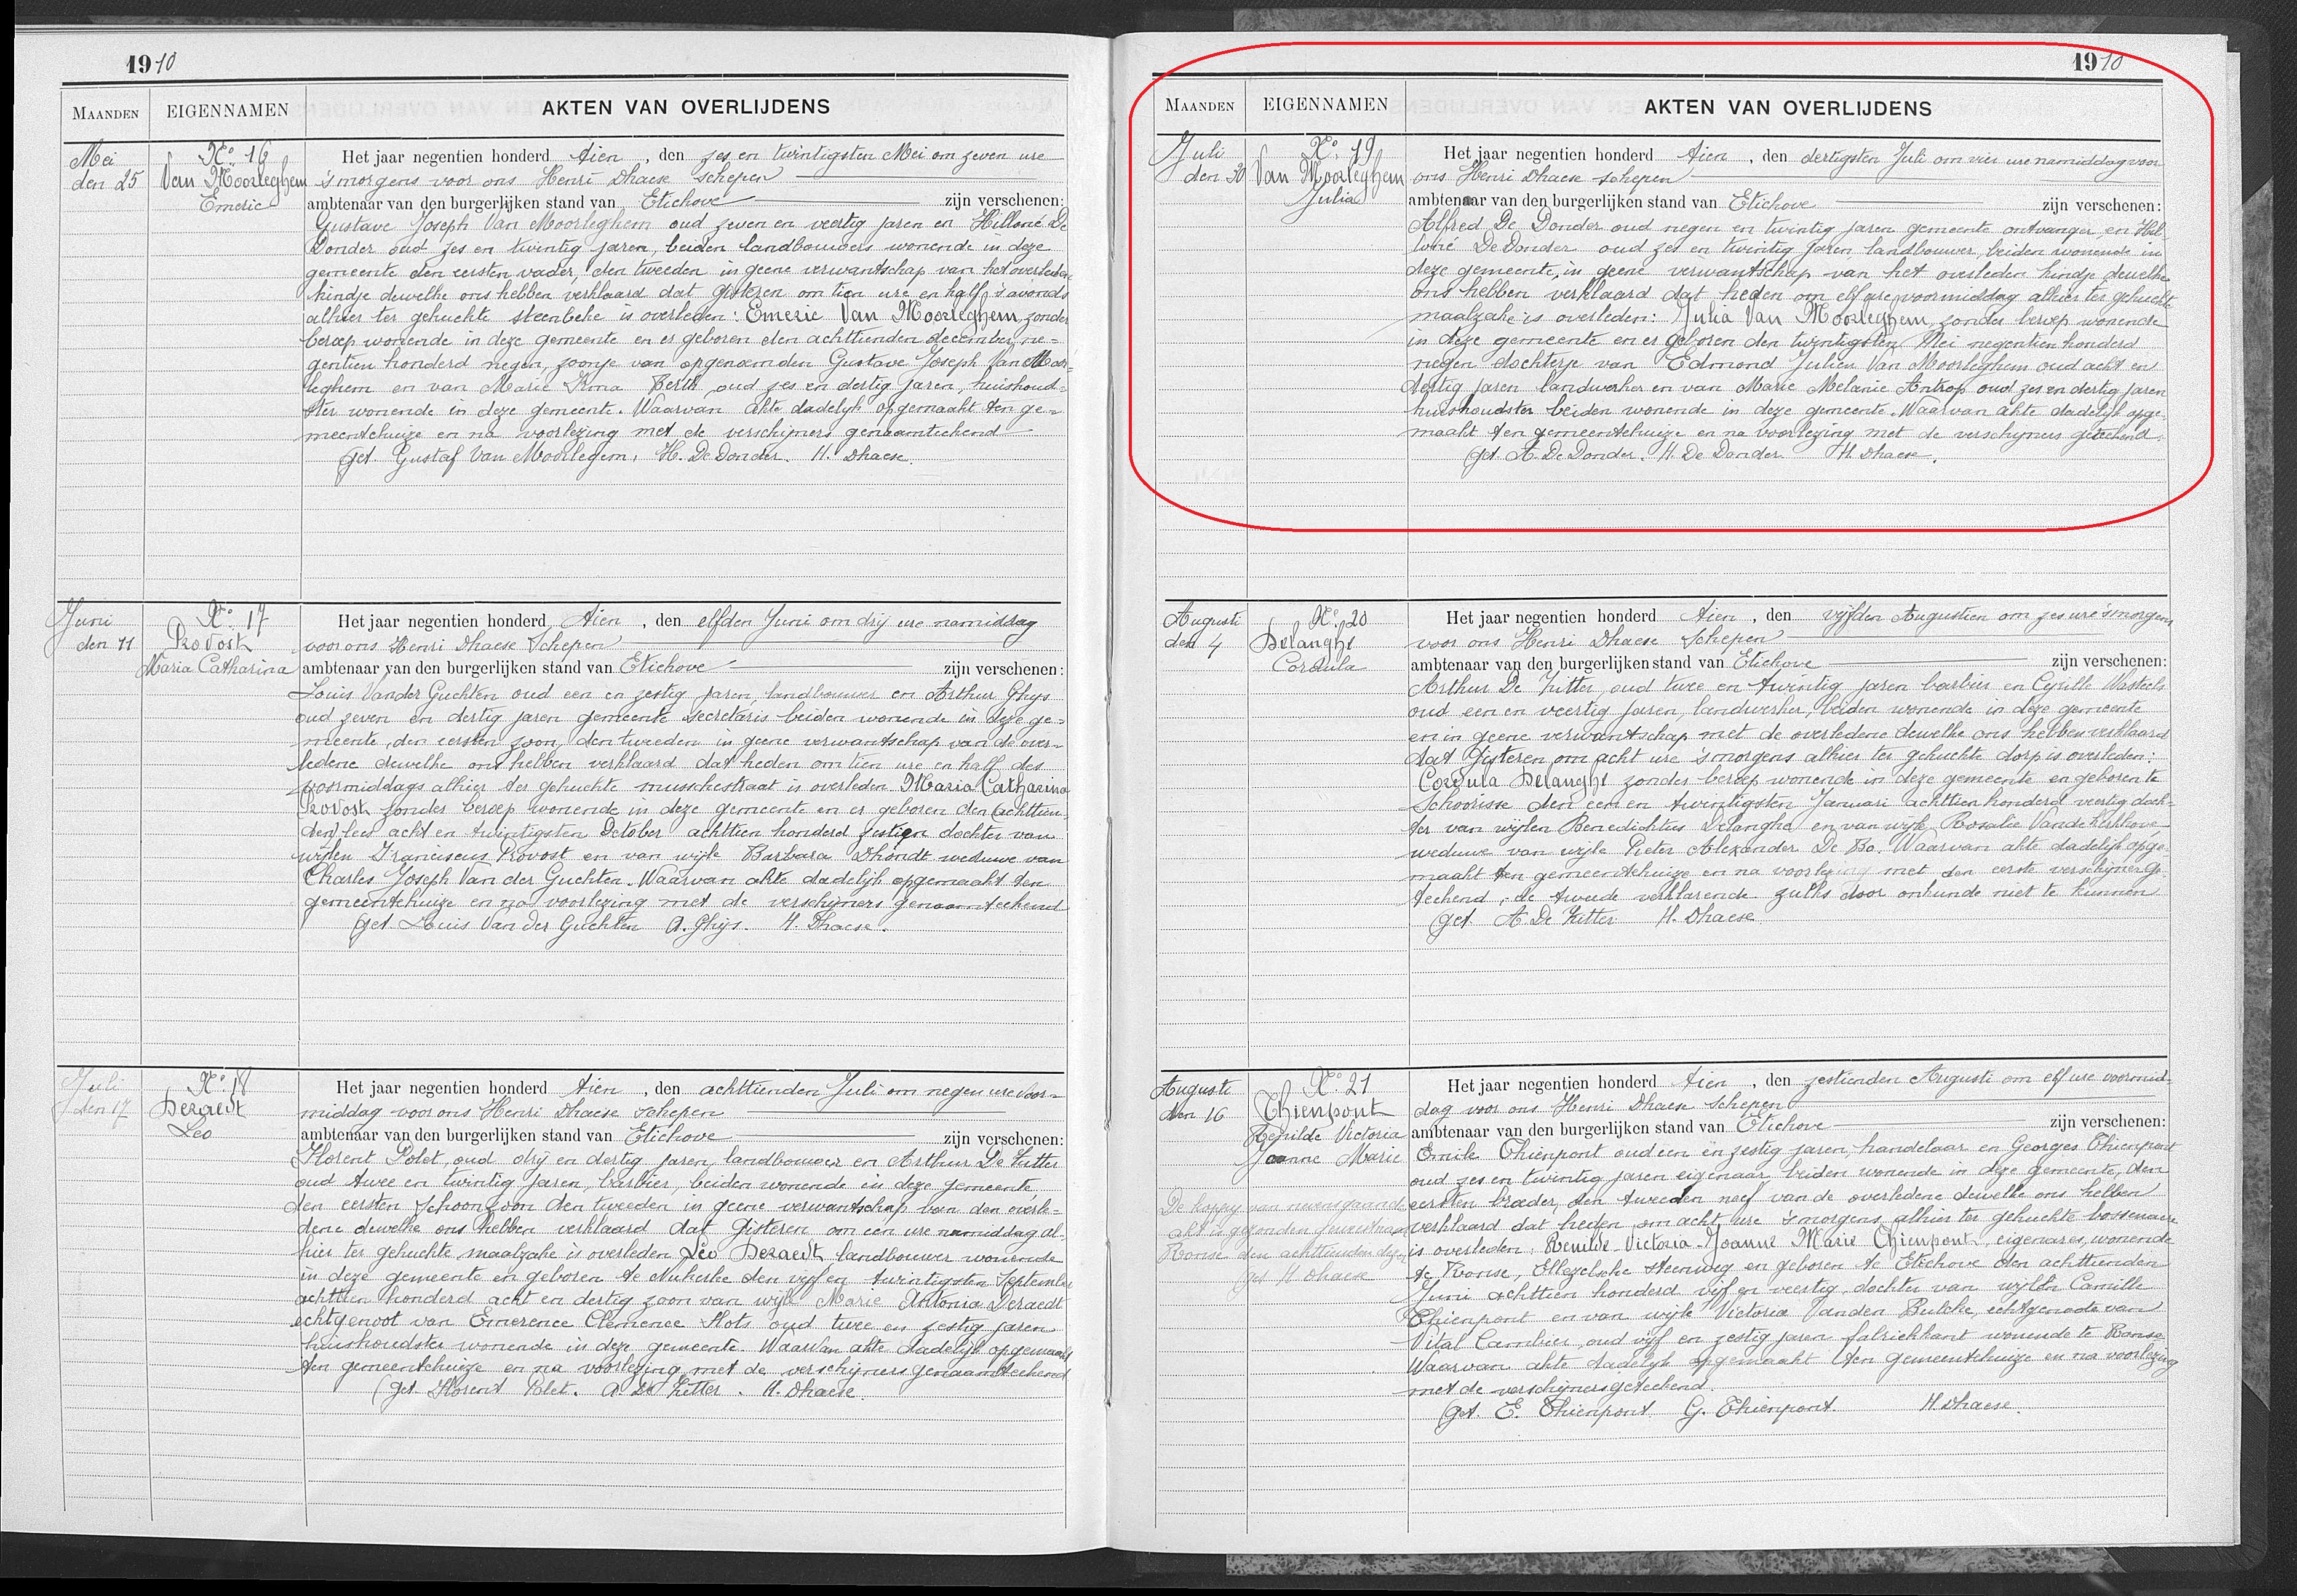 1910
MAANDEN EIGENNAMEN AKTEN VAN OVERLIJDENS
Mei
den 25
N° 16
Van Moorleghem
Emeric
Het jaar negentien honderd tien, den zes en twintigsten Mei om zeven ure
's morgens voor ons Henri Dhaese schepen
ambtenaar van den burgerlijken stand van Etichove zijn verschenen:
Gustave Joseph Van Moorleghem oud zeven en veertig jaren en Hilloné De
Donder oud zes en twintig jaren, beiden landbouwers wonende in deze
gemeente den eersten vader, den tweeden in geene verwantschap van het overleden
kindje dewelke ons hebben verklaard dat gisteren om tien ure en half 's avonds
alhier ter gehuchte steenbeke is overleden: Emeric Van Moorleghem, zonder
beroep wonende in deze gemeente en er geboren den achttienden december, ne=
gentien honderd negen, zoontje van opgenoemden Gustave Joseph Van Moor=
leghem en van Marie Irma Berth oud zes en dertig jaren, huishoud=
ster wonende in deze gemeente. Waarvan akte dadelijk opgemaakt ten ge=
meentehuize en na voorlezing met de verschijners genaamteekend
get. Gustaf Van Moorlegem, H. De Donder. H. Dhaese.
Juni
den 11
N° 17
Provost
Maria Catharina
Het jaar negentien honderd tien, den elfden Juni om drij ure namiddag
voor ons Henri Dhaese Schepen
ambtenaar van den burgerlijken stand van Etichove zijn verschenen:
Louis Vander Guchten oud een en zestig jaren, landbouwer en Arthur Ghys
oud zeven en dertig jaren gemeente secretaris beiden wonende in deze ge=
meente, den eersten zoon, den tweeden in geene verwantschap van de over=
ledene dewelke ons hebben verklaard dat heden om tien ure en half des
voormiddags alhier ter gehuchte musschestraat is overleden Maria Catharina
Provost zonder beroep wonende in deze gemeente en er geboren den (achttien
den) lees acht en twintigsten October achttien honderd zestien dochter van
wijlen Franciscus Provost en van wijle Barbara Dhondt weduwe van
Charles Joseph Van der Guchten. Waarvan akte dadelijk opgemaakt ten
gemeentehuize en na voorlezing met de verschijners genaamteekend
get Louis Van Der Guchten A. Ghijs. H. Dhaese.
Juli
den 17
N° 18
Deraedt
Leo
Het jaar negentien honderd tien, den achttienden Juli om negen ure voor=
middag voor ons Henri Dhaese schepen
ambtenaar van den burgerlijken stand van Etichove zijn verschenen:
Florent Polet, oud drij en dertig jaren, landbouwer en Arthur De Zutter
oud twee en twintig jaren, barbier, beiden wonende in deze gemeente
den eersten schoonzoon den tweeden in geene verwantschap van den overle=
dene dewelke ons hebben verklaard dat gisteren om een ure namiddag al=
hier ter gehuchte maalzake is overleden Leo Deraedt landbouwer wonende
in deze gemeente en geboren te Nukerke den vijf en twintigsten September
achttien honderd acht en dertig zoon van wijle Marie Antonia Deraedt
echtgenoot van Emerence Clemence Slots oud twee en zestig jaren
huishoudster wonende in deze gemeente. Waarvan akte dadelijk opgemaakt
ten gemeentehuize en na voorlezing met de verschijners genaamteekend
(get. Florent Polet. A. De Zutter. H. Dhaese.
1910
MAANDEN EIGENNAMEN AKTEN VAN OVERLIJDENS
Juli
den 30
N° 19
Van Moorleghem
Julia
Het jaar negentien honderd tien, den dertigsten Juli om vier ure namiddag voor
ons Henri Dhaese schepen
ambtenaar van den burgerlijken stand van Etichove zijn verschenen:
Alfred De Donder oud negen en twintig jaren gemeente ontvanger, en Hil=
loné De Donder oud zes en twintig jaren landbouwer, beiden wonende in
deze gemeente, in geene verwantschap van het overleden kindje dewelke
ons hebben verklaard dat heden om elf ure voormiddag alhier ter gehuchte
maalzake is overleden: Julia Van Moorleghem, zonder beroep wonende
in deze gemeente en er geboren den twintigsten Mei negentien honderd
negen dochterje van Edmond Julien Van Moorleghem oud acht en
dertig jaren landwerker en van Marie Melanie Antrop oud zes en dertig jaren
huishoudster beiden wonende in deze gemeente. Waarvan akte dadelijk opge=
maakt ten gemeentehuize en na voorlezing met de verschijners geteekend.
get. A. De Donder. H. De Donder. H. Dhaese.
Augusti
den 4
N° 20
Delanghe
Cordula
Het jaar negentien honderd tien, den vijfden Augustien om zes ure 's morgens
voor ons Henri Dhaese Schepen
ambtenaar van den burgerlijken stand van Etichove zijn verschenen:
Arthur De Zutter, oud twee en twintig jaren barbier en Cyrille Wasteels
oud een en veertig jaren, landwerker, beiden wonende in deze gemeente
en in geene verwantschap met de overledene dewelke ons hebben verklaard
dat gisteren om acht ure 's morgens alhier ter gehuchte dorp is overleden:
Cordula Delanghe zonder beroep wonende in deze gemeente en geboren te
Schoorisse den een en twintigsten Januari achttien honderd veertig doch=
ter van wijlen Benedictus Delanghe en van wijle Rosalie Vande Kerkhove
weduwe van wijle Pieter Alexander De Bo. Waarvan akte dadelijk opge=
maakt ten gemeentehuize en na voorlezing met den eerste verschijner ge=
teekend, de tweede verklarende zulks door onkunde niet te kunnen
get. A De Zutter H. Dhaese
Augusti
den 16
N° 21
Thienpont
Renilde Victoria
Joanne Marie
De koppy van nevensgaande
akt is gezonden geweest naar
Ronse den achttienden dezer
get H Dhaese
Het jaar negentien honderd tien, den zestienden Augusti om elf ure voormid=
dag voor ons Henri Dhaese Schepen
ambtenaar van den burgerlijken stand van Etichove zijn verschenen:
Emile Thienpont oud een en zestig jaren, handelaar en Georges Thienpont
oud zes en twintig jaren eigenaar, beiden wonende in deze gemeente, den
eersten broeder, den tweeden neef van de overledene dewelke ons hebben
verklaard dat heden om acht ure 's morgens alhier ter gehuchte bossenare
is overleden, Renilde Victoria Joanne Marie Thienpont, eigenares, wonende
te Ronse, Ellezelsche steenweg en geboren te Etichove den achttienden
Juni achttien honderd vijf en veertig, dochter van wijlen Camille
Thienpont en van wijle Victoria Vanden Bulcke, echtgenoote van
Vital Cambier, oud vijf en zestig jaren fabriekkant wonende te Ronse
Waarvan akte dadelijk opgemaakt ten gemeentehuize en na voorlezing
met de verschijners geteekend.
get. E. Thienpont G. Thienpont. H. Dhaese.